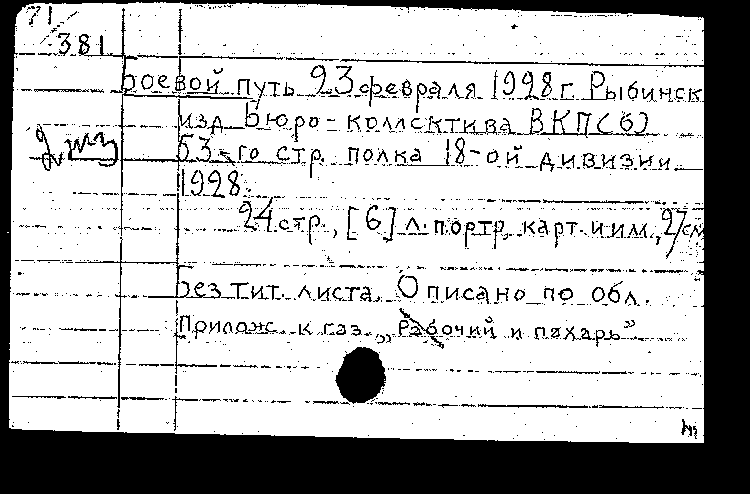 71/
381
Боевой путь 23 февраля 1928 г. Рыбинск
изд. Бюро-коллектива ВКП(б)
53-го стр. полка 18-ой дивизии
1928.
24 стр., [6] л. портр., карт. и им., 27 см
Без тит. листа. Описано по обл.
Прилож. к газ. „Рабочий и пахарь”